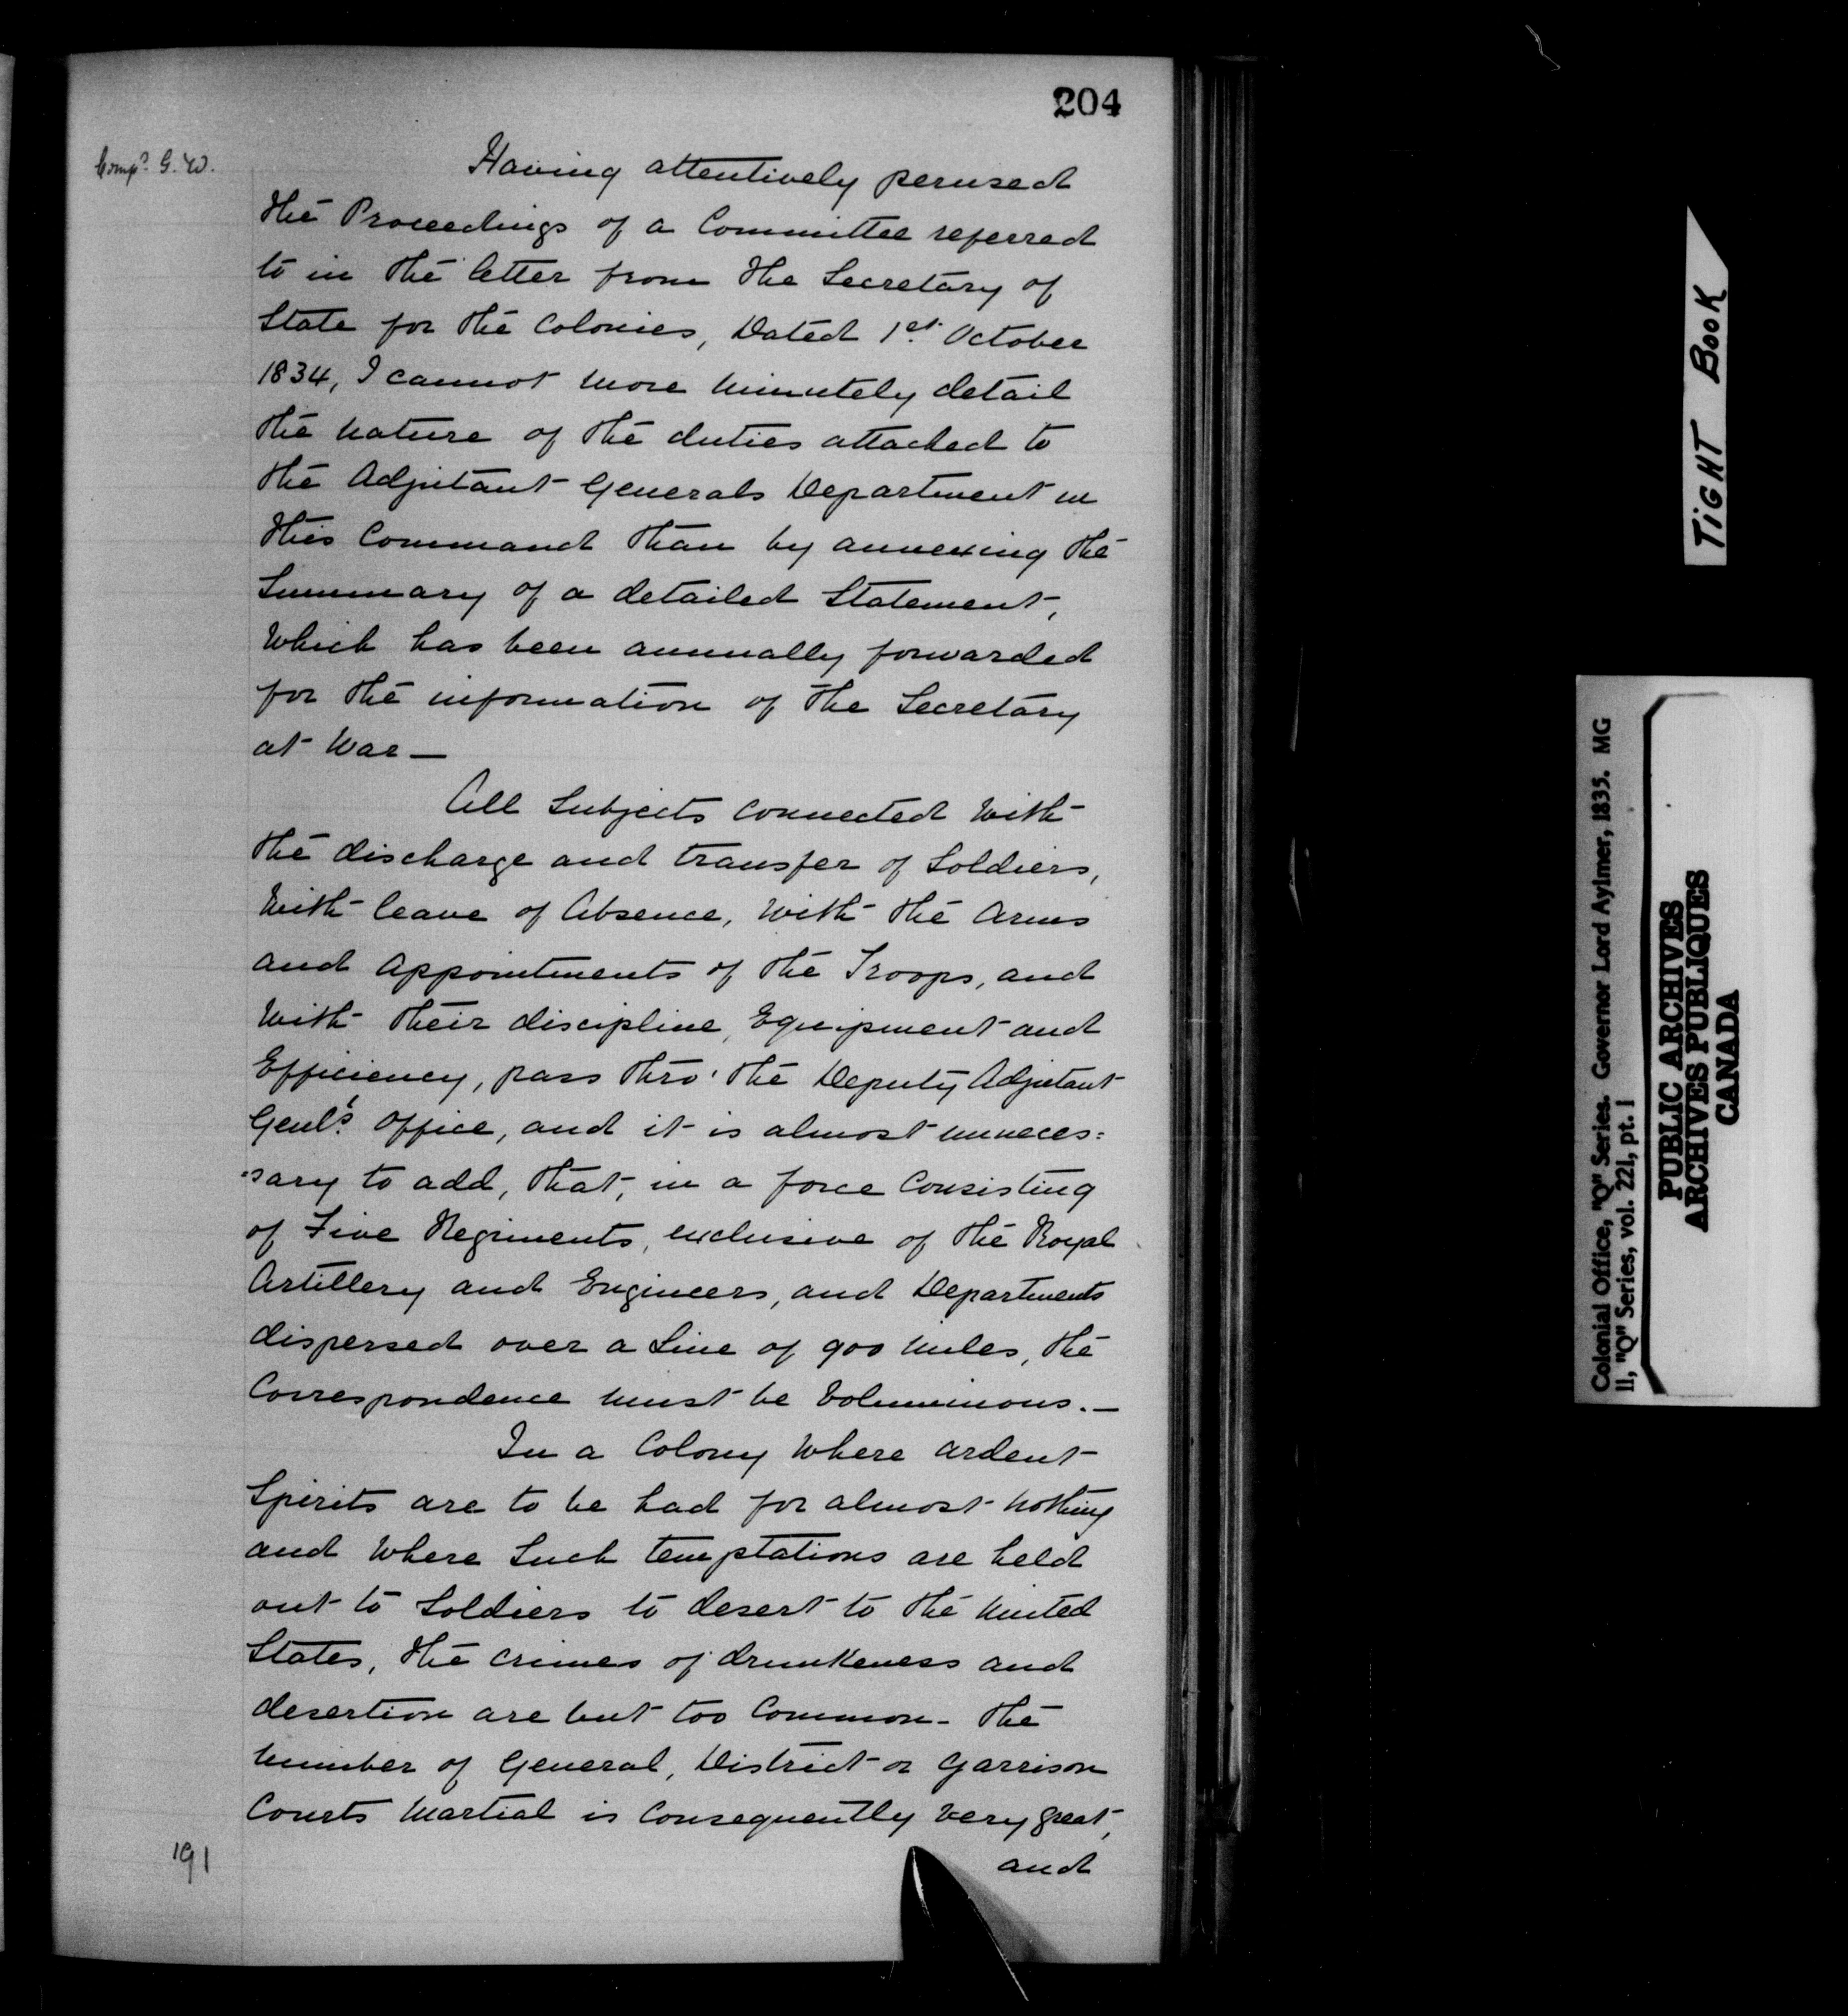 204
Comp.d G. W.
Having attentively perused
the Proceedings of a Committee referred
to in the letter from the Secretary of
State for the Colonies, Dated 1st. October
1834, I cannot more minutely detail
the nature of the duties attached to
the Adjutant Generals Department in
this Command than by annexing the
Summary of a detailed Statement,
Which has been annually forwarded
for the information of the Secretary
at War —
All Subjects connected With
the discharge and transfer of Soldiers,
With leave of Absence, With the Arms
and Appointments of the Troops, and
With their discipline, Equipment and
Efficiency, pass thro' the Deputy Adjutant
Genl's. Office, and it is almost unneces:
:sary to add, that, in a force Consisting
of Five Regiments, exclusive of the Royal
Artillery and Engineers, and Departments
dispersed over a Line of 900 Miles, the
Correspondence must be Voluminous. —
In a Colony Where ardent
Spirits are to be had for almost nothing
and Where Such temptations are held
out to Soldiers to desert to the United
States, the Crimes of drunkeness and
desertion are but too Common - The
Number of General, District or Garrison
Courts Martial is Consequently Very great,
and
191
TIGHT BOOK
Colonial Office, "Q" Series. Governor Lord Aylmer, 1835. MG
11, "Q" Series, vol. 221, pt. 1
PUBLIC ARCHIVES
ARCHIVES PUBLIQUES
CANADA